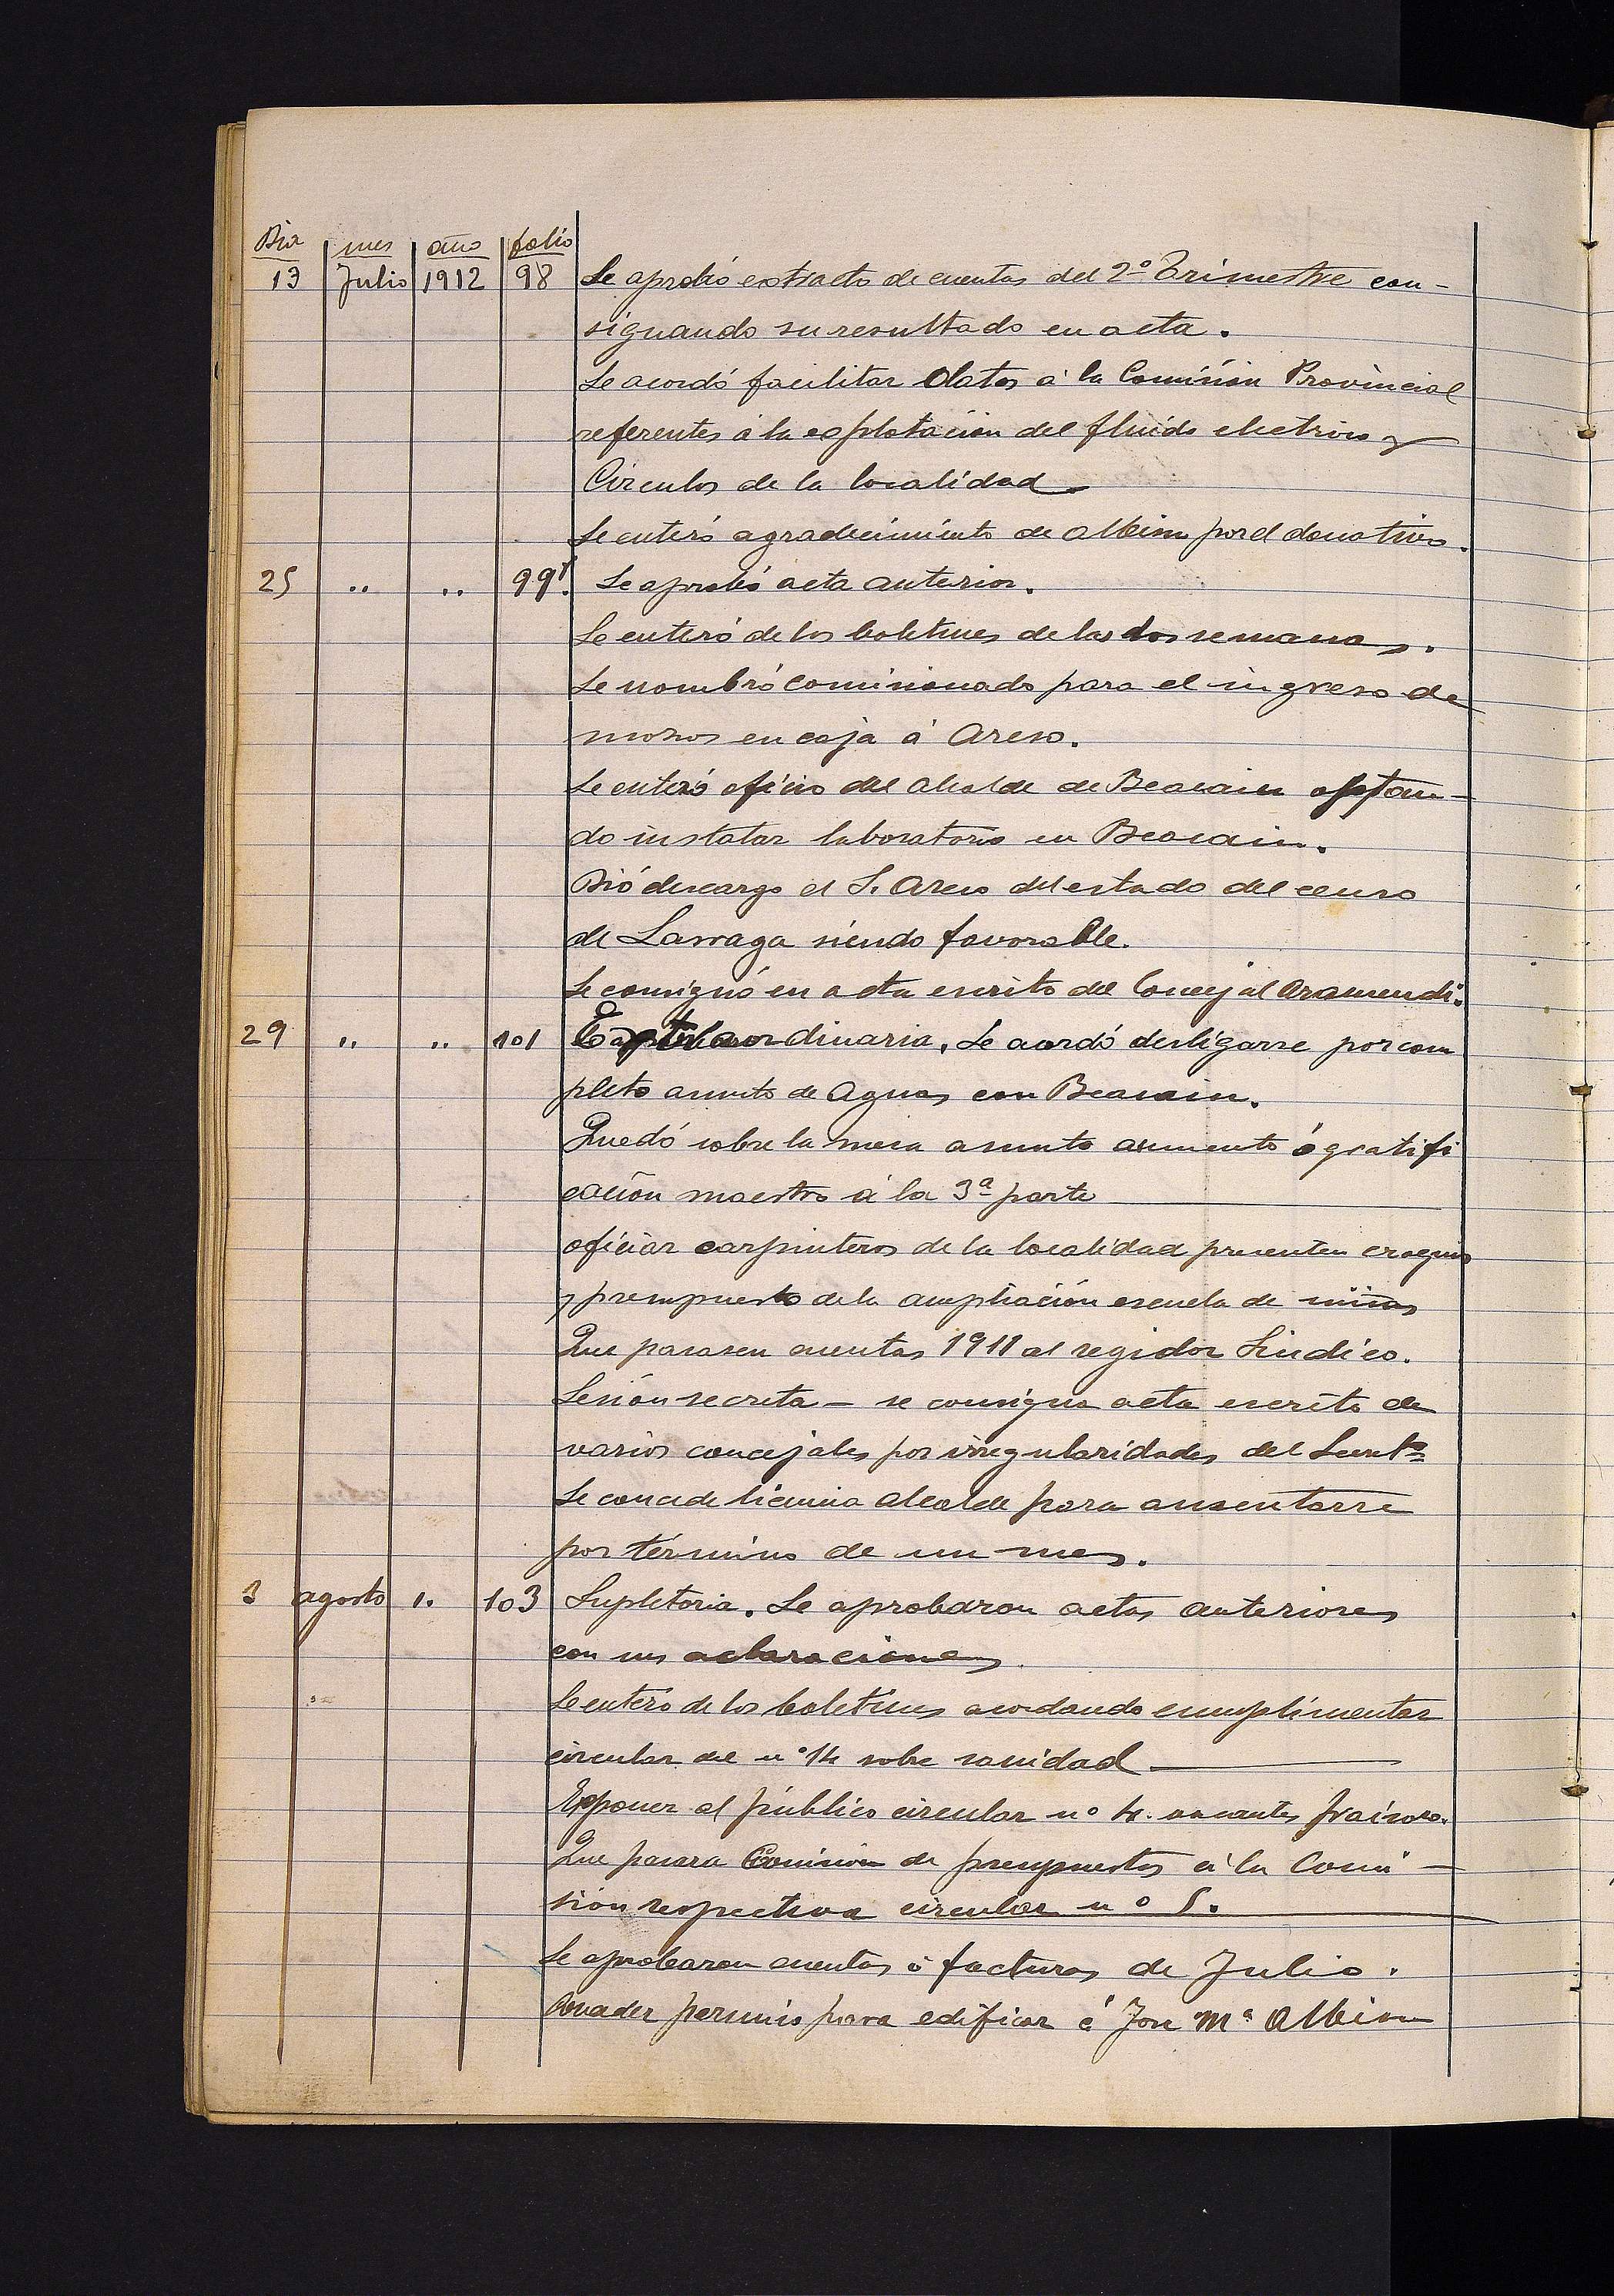 Dia mes año folio
13 Julio 1912 98 Se aprobó extracto de cuentas del 2º Trimestre con-
signando su resultado en acta.
Se acordó facilitar datos á la Comisión Provincial
referentes á la explotación del fluido electrico y
Circulos de la localidad
Se enteró agradecimiento de Albisu por el donativo.
25 " " 99 Se aprobó acta anterior.
Se enteró de los boletines de las dos semanas.
Se nombró comisionado para el ingreso de
mozos en caja á Areso.
Se enteró oficio del alcalde de Beasain
do instalar laboratorio en Beasain.
Dió descargo el S. Areso del estado del censo
de Larraga siendo favorable.
Se consignó en acta escrito del Concejal Aramendi.
29 " " 101 Extraordinaria. Se acordó desligarse por com
pleto asunto de Aguas con Beasain.
Quedó sobre la mesa asunto aumento ó gratifi
cación maestro á la 3ª parte
oficiar carpinteros de la localidad presenten croquis
y presupuesto de la ampliación escuela de niñas
Que pasasen cuentas 1911 al regidor Sindico.
Sesión secreta - se consigna acta escrito de
varios concejales por irregularidades del
Se concede licencia alcalde para ausentarse
por término de un mes.
3 agosto " 103 Supletoria. Se aprobaron actas anteriores
con sus aclaraciones.
Se enteró de los boletines acordando cumplimentar
circular del nº 14 sobre sanidad
Exponer al público circular nº 4. vacantes
Que pasara Comision de presupuestos á la Comi-
sión respectiva circular nº 5.
Se aprobaron cuentas ó facturas de Julio.
Conceder permiso para edificar á Jose Mª Albisu